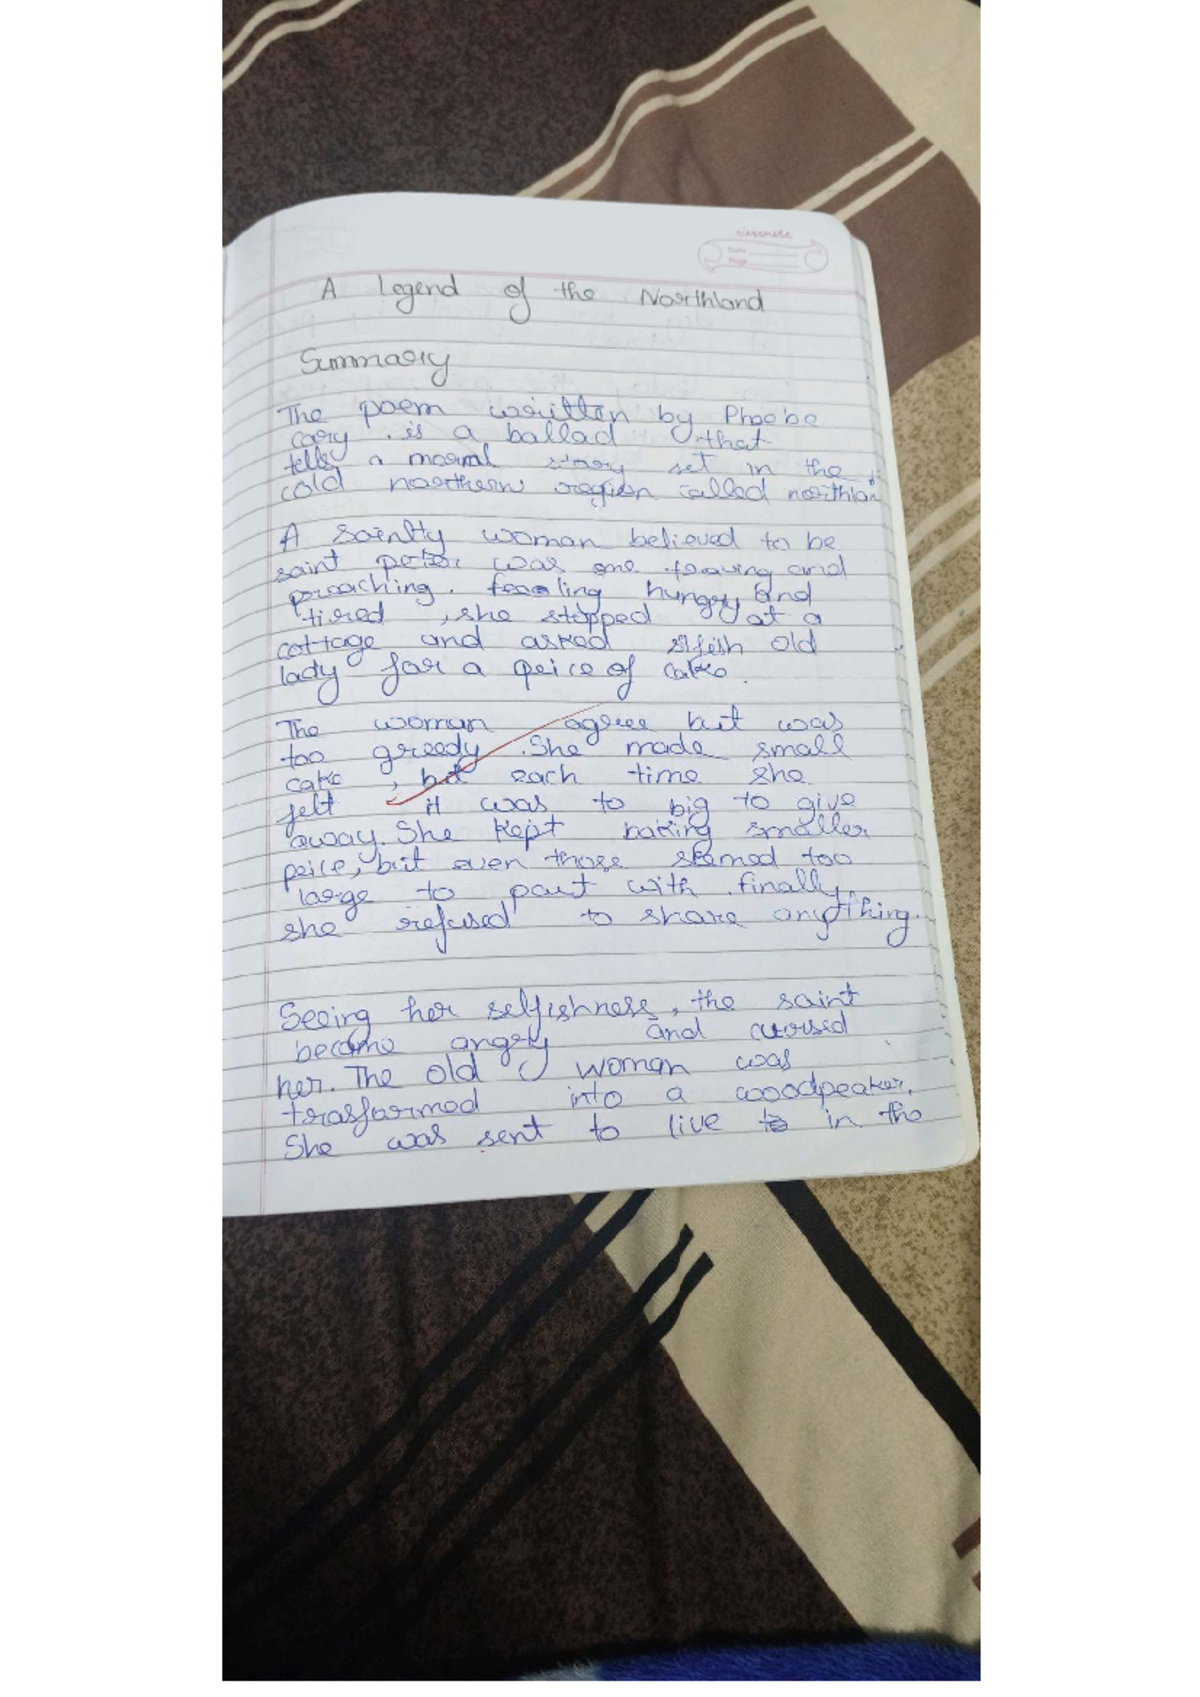 classmate
Date
Page
A Legend of the Northland
Summary
The poem written by Phoebe
cary . is a ballad that
tells a moral story set in the
cold northern region called northlan
A saintly woman believed to be
saint peter was one and
preaching. feeling hungry and
tired , she stopped at a
cottage and asked slfish old
lady for a peice of cake.
The woman agree but was
too greedy . She made small
cake , but each time she
felt it was to big to give
away. She kept baking smaller
peice, but even those seemed too
large to part with . finally,
she refused to share anything.
Seeing her selfishness, the saint
became angry and cursed
her. The old woman was
trasformed into a woodpeaker.
She was sent to live in the